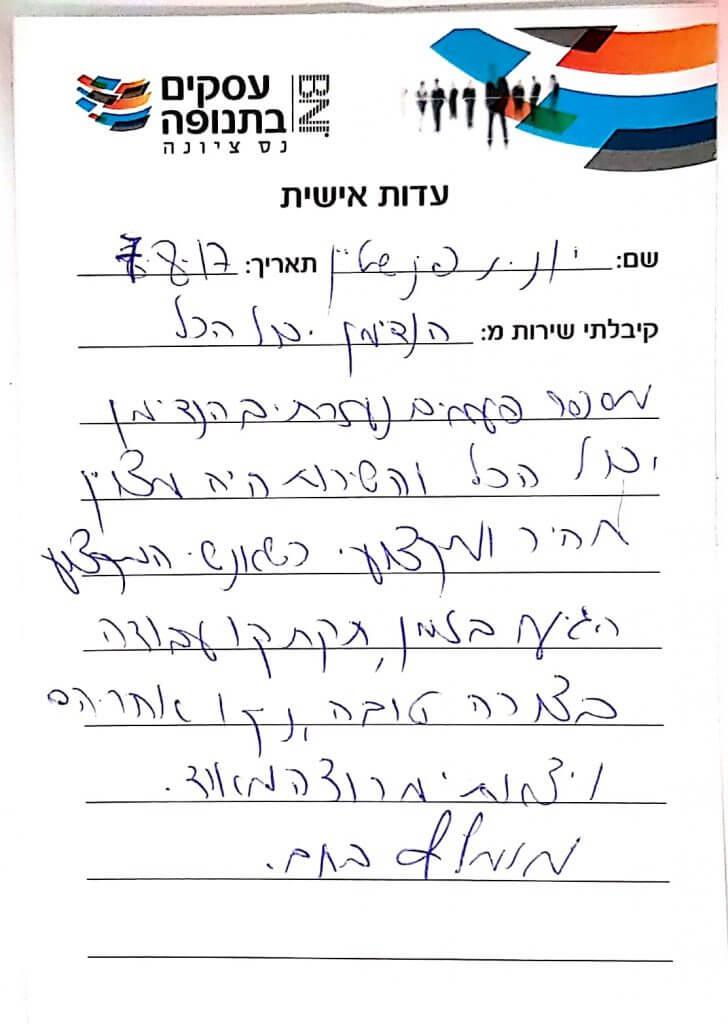 עסקים
בתנופה
נס ציונה
BNI
עדות אישית
שם: יונית פנשטיין תאריך: 7.8.17
קיבלתי שירות מ: הנדימן יכול הכל
מספר פעמים נעזרתי בהנדימן
יכול הכל והשירות היה מצוין
מהיר ומקצועי. כשאנשי המקצוע
הגיעו בזמן, תקתקו עבודה
בצורה טובה, ניקו אחריהם
ויצאתי מרוצה מאוד.
מומלץ בחום.